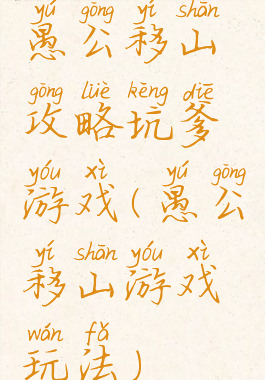 yú gōng yí shān
愚公移山
gōng lüè kēng diē
攻略坑爹
yóu xì yú gōng
游戏(愚公
yí shān yóu xì
移山游戏
wán fǎ
玩法)